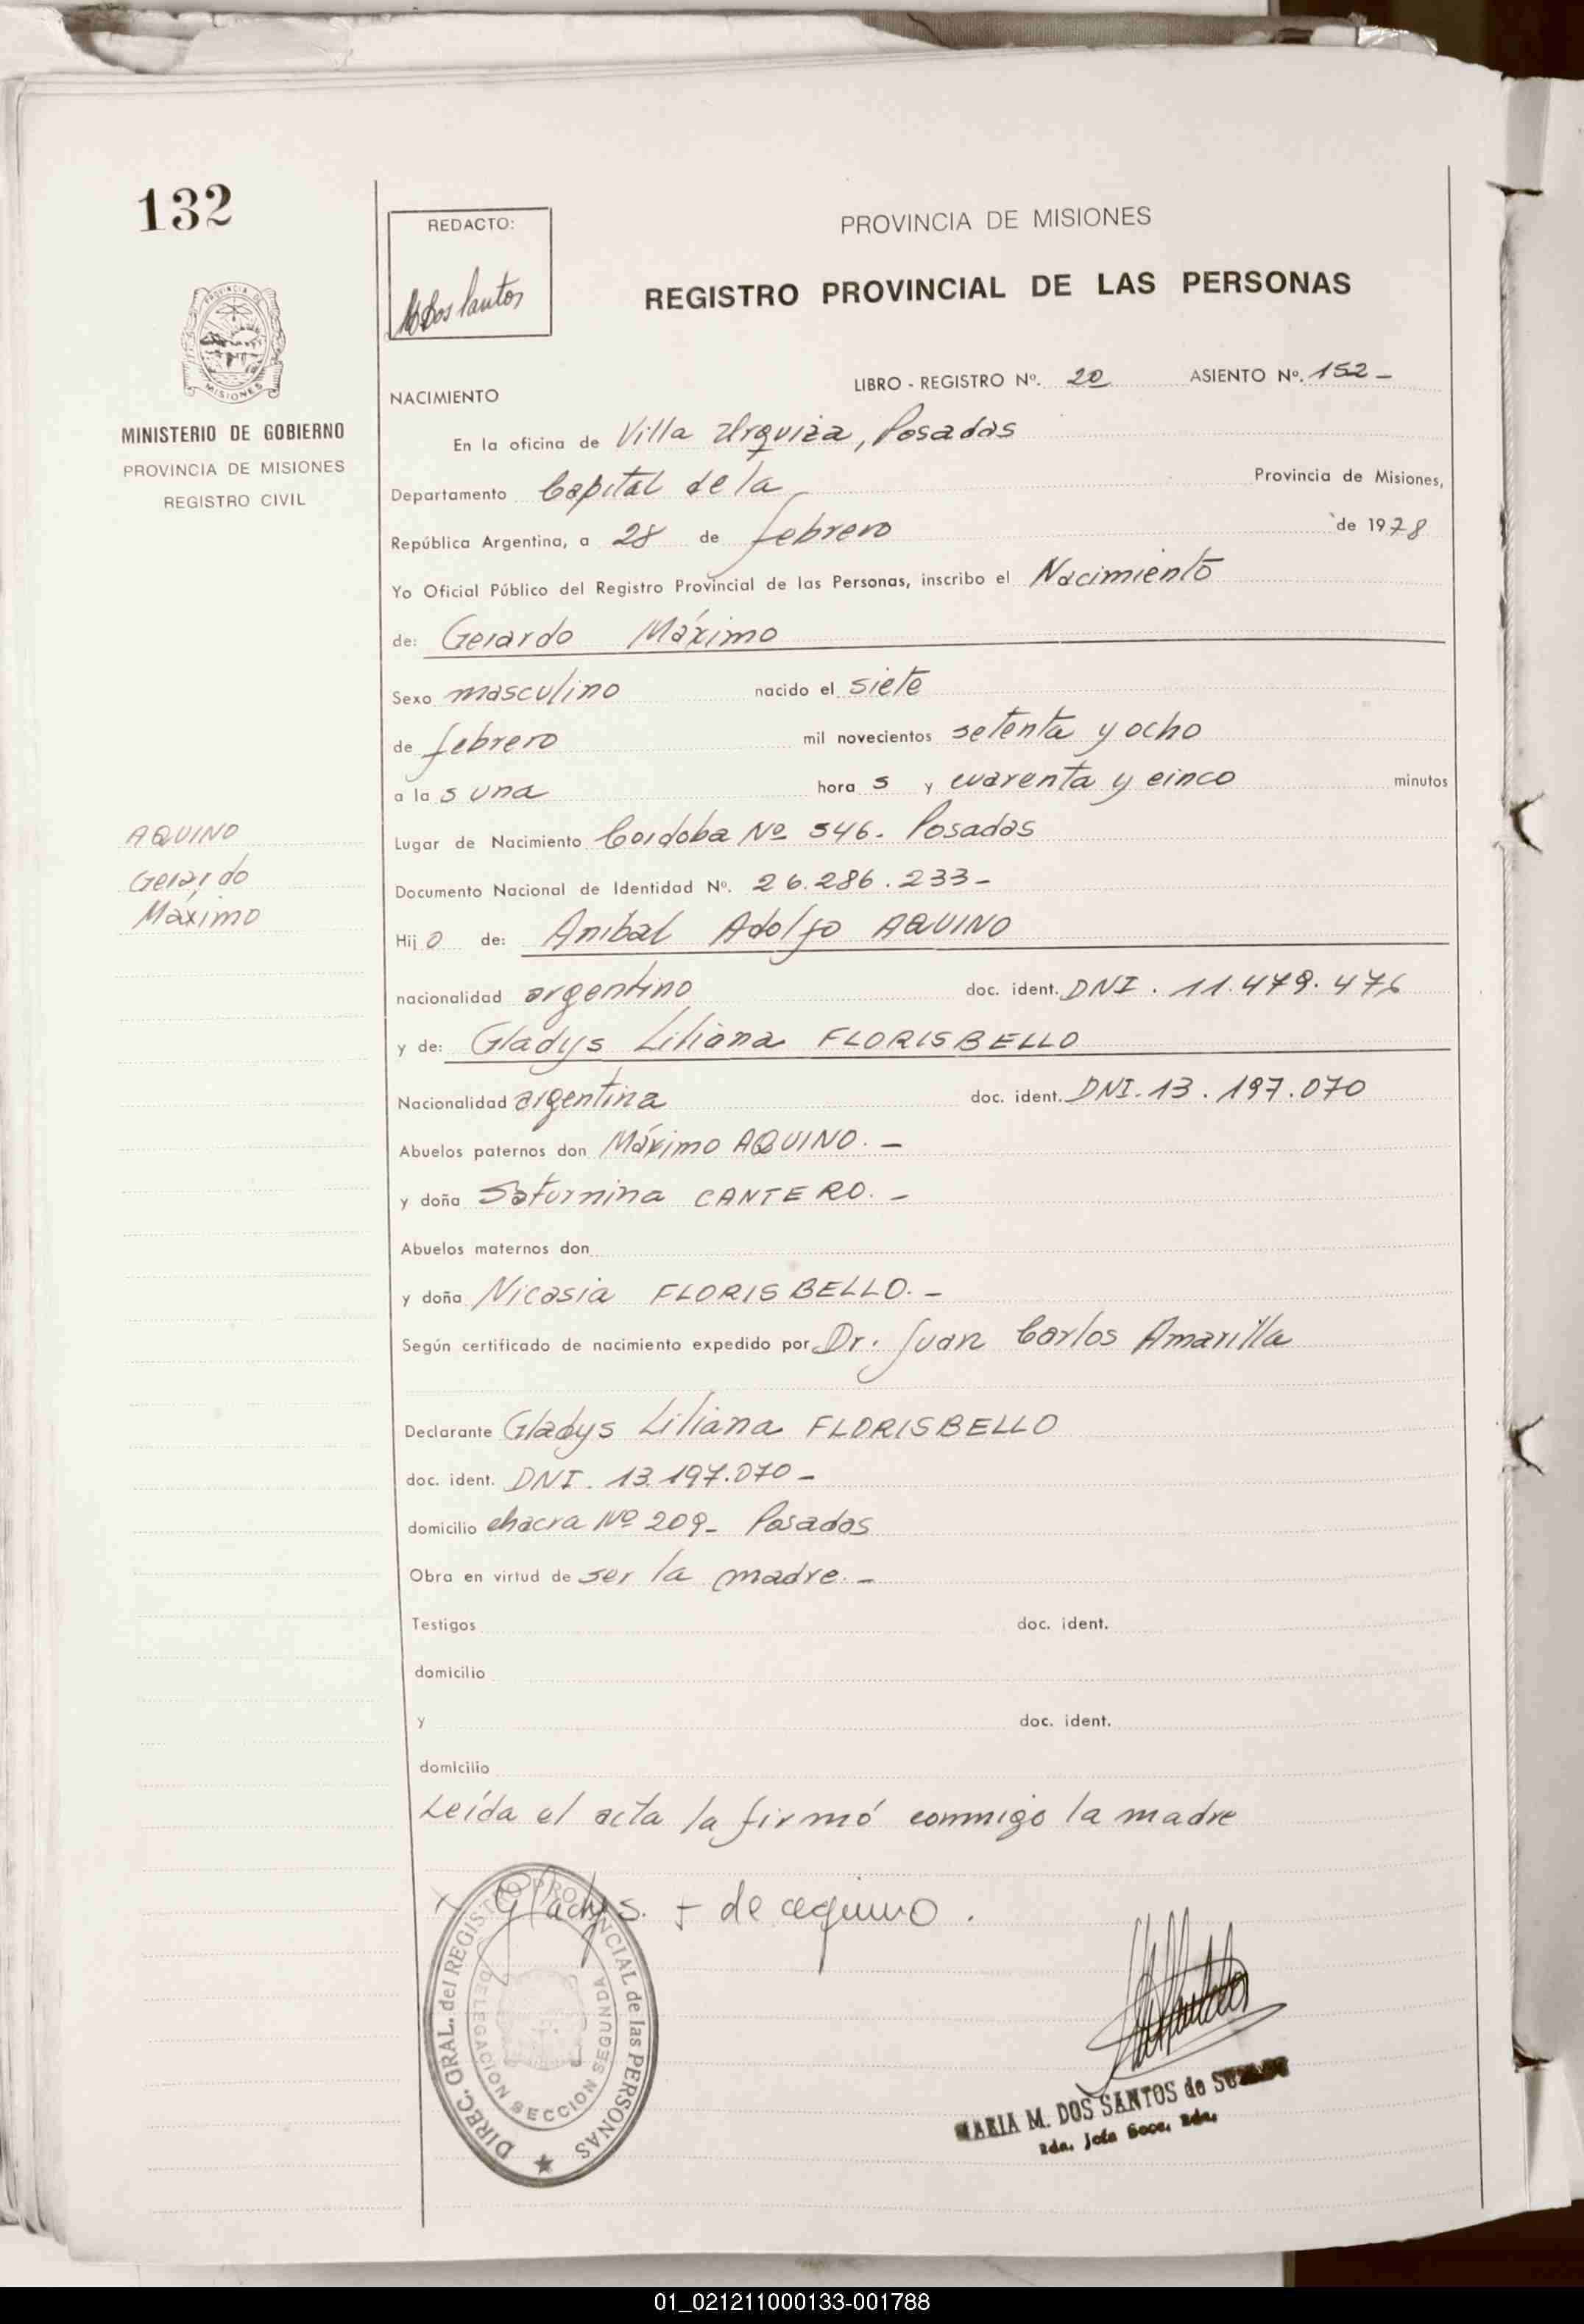 132
REDACTO:
MDos Santos
PROVINCIA DE MISIONES
REGISTRO PROVINCIAL DE LAS PERSONAS
PROVINCIA DE
MISIONES
MINISTERIO DE GOBIERNO
PROVINCIA DE MISIONES
REGISTRO CIVIL
LIBRO - REGISTRO Nº. 20 ASIENTO Nº. 152 -
NACIMIENTO
En la oficina de Villa Urquiza, Posadas
Departamento Capital de la Provincia de Misiones,
República Argentina, a 28 de febrero de 1978
Yo Oficial Público del Registro Provincial de las Personas, inscribo el Nacimiento
de: Gerardo Máximo
Sexo masculino nacido el siete
de febrero mil novecientos setenta y ocho
a la s una hora s y cuarenta y cinco minutos
AQUINO
Gerardo
Máximo
Lugar de Nacimiento Cordoba Nº 546. Posadas
Documento Nacional de Identidad Nº. 26.286.233-
Hij o de: Anibal Adolfo AQUINO
nacionalidad argentino doc. ident. DNI. 11.479.476
y de: Gladys Liliana FLORISBELLO
Nacionalidad argentina doc. ident. DNI. 13.197.070
Abuelos paternos don Máximo AQUINO. -
y doña Saturnina CANTERO. -
Abuelos maternos don
y doña Nicasia FLORISBELLO. -
Según certificado de nacimiento expedido por Dr. Juan Carlos Amarilla
Declarante Gladys Liliana FLORISBELLO
doc. ident. DNI. 13.197.070 -
domicilio chacra Nº 209- Posadas
Obra en virtud de ser la madre. -
Testigos doc. ident.
domicilio
y doc. ident.
domicilio
Leída el acta la firmó conmigo la madre
x Gladys. F de aquino.
DIREC. GRAL. del REGISTRO PROVINCIAL de las PERSONAS
DELEGACION SECCION SEGUNDA
MARIA M. DOS SANTOS de
2da. Jefa Secc. 2da.
01_021211000133-001788